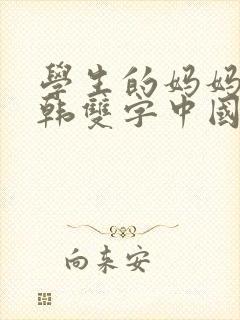 學生的妈妈
韩雙字中國
向来安